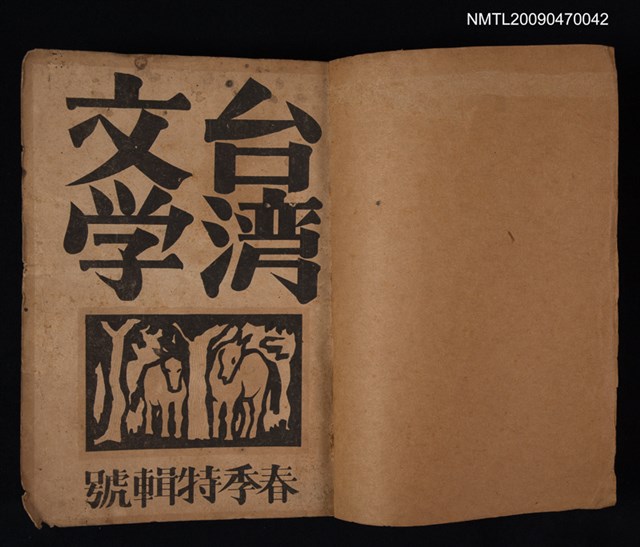 NMTL20090470042
台湾
文学
春季特輯號